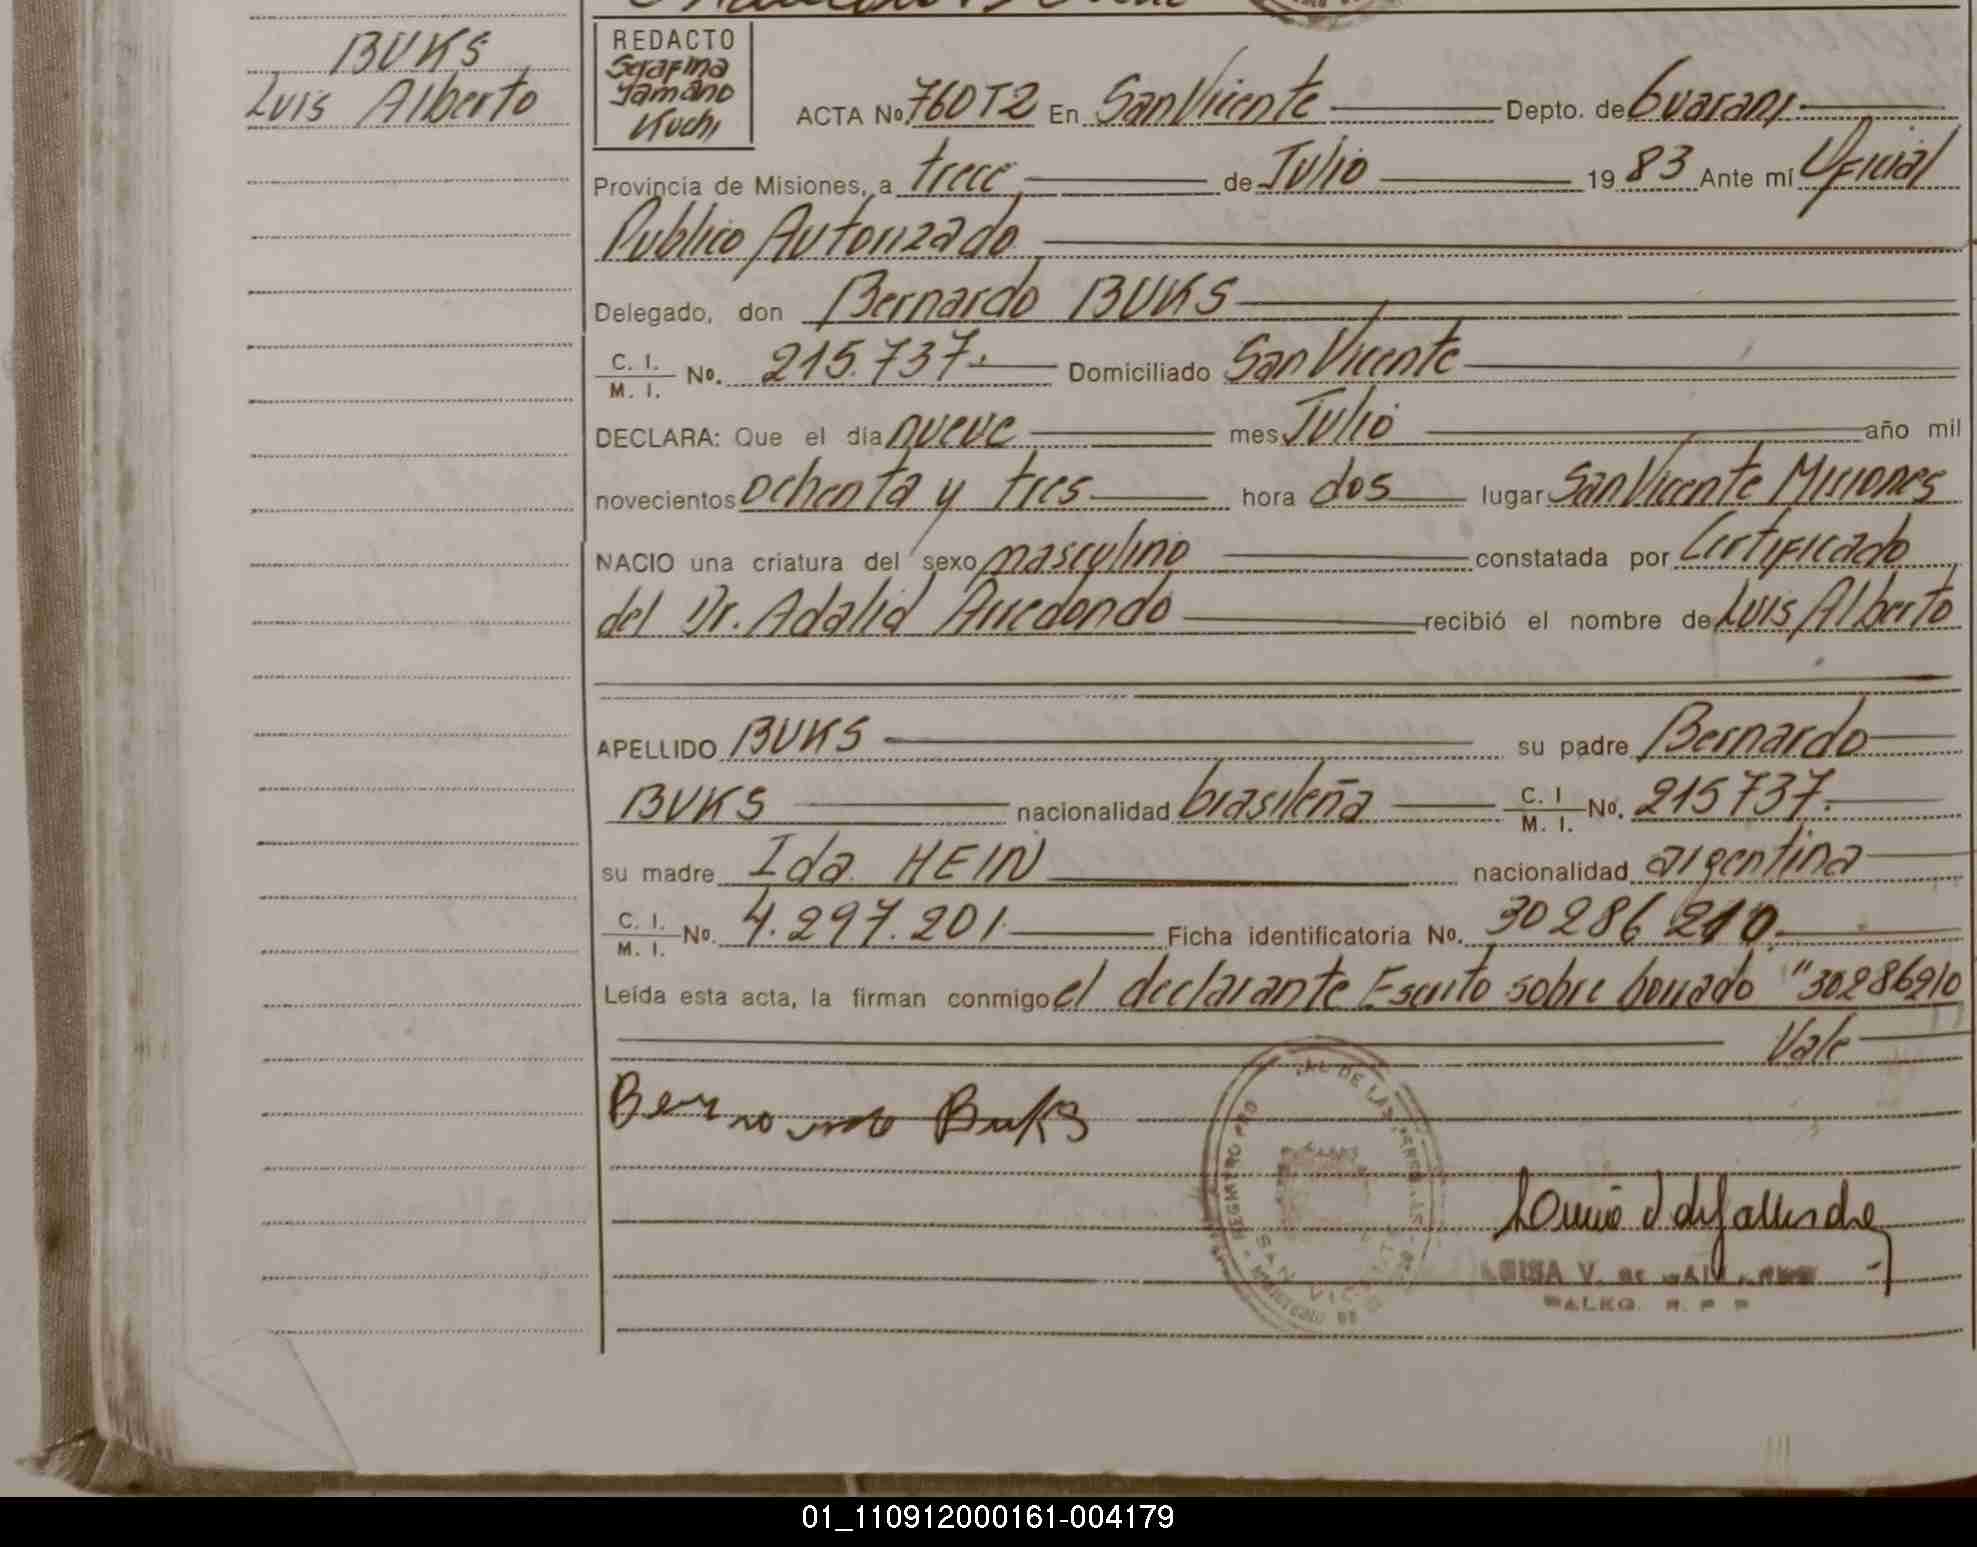 BUKS
Luis Alberto
REDACTO
Serafina
Yamano
Kuchi
ACTA No. 760T2 En San Vicente Depto. de Guarani
Provincia de Misiones, a trece de Julio 19 83 Ante mí Oficial
Publico Autorizado
Delegado, don Bernardo BUKS
C. I. / M. I. No. 215.737. Domiciliado San Vicente
DECLARA: Que el día nueve mes Julio año mil
novecientos ochenta y tres hora dos lugar San Vicente Misiones
NACIO una criatura del sexo masculino constatada por Certificado
del Dr. Adalid Arredondo recibió el nombre de Luis Alberto
APELLIDO BUKS su padre Bernardo
BUKS nacionalidad brasileña C. I / M. I. No. 215737.
su madre Ida HEIN nacionalidad argentina
C. I. / M. I. No. 4.297.201. Ficha identificatoria No. 30286210.
Leída esta acta, la firman conmigo el declarante Escrito sobre borrado "30286210
Vale
Bernardo Buks
SAN VICENTE
LUISA V. de
R. P. P
01_110912000161-004179